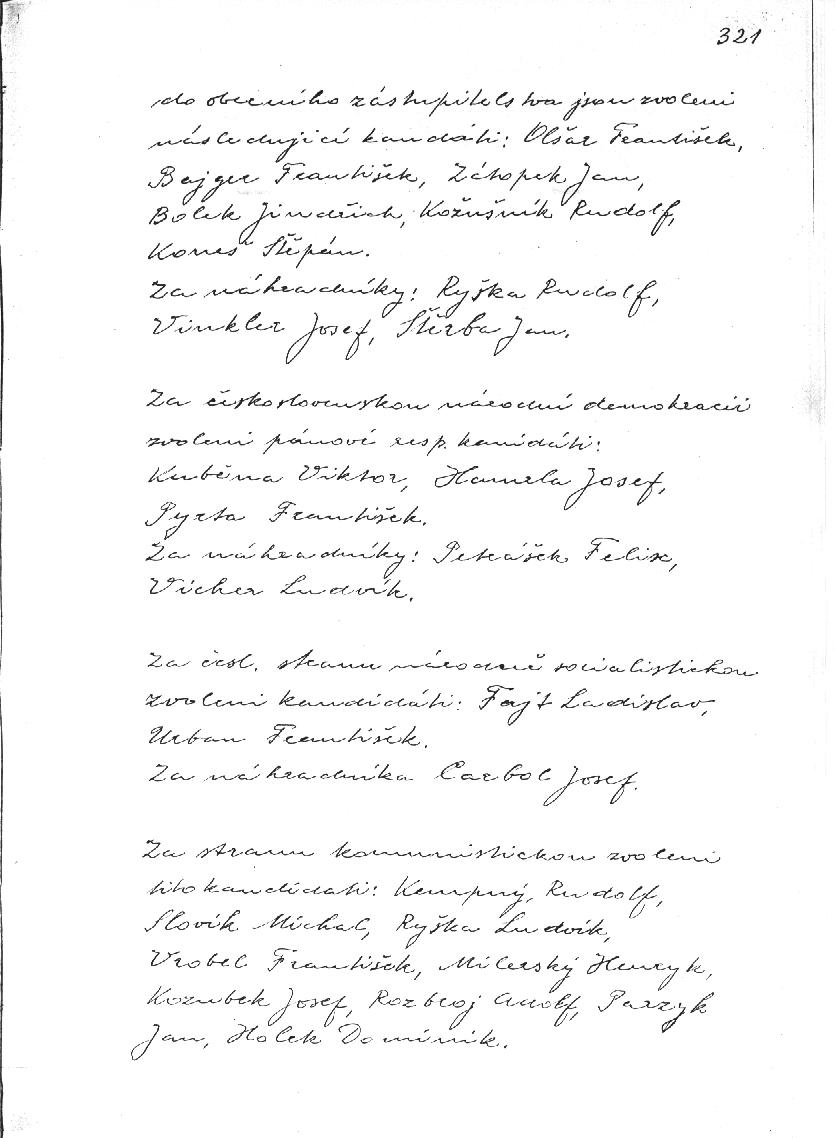 321
do obecního zástupitelstva jsou zvoleni
následující kandáti: Olšar František,
Bajger František, Zátopek Jan,
Bolek Jindřich, Kožušník Rudolf,
Koneš Štěpán.
Za náhradníky: Ryška Rudolf,
Vinkler Josef, Štěrba Jan.
Za československou národní demokracii
zvoleni pánové resp. kanidáti:
Kuběna Viktor, Hamrla Josef,
Pyrta František.
Za náhradníky: Petrášek Felix,
Vicher Ludvík.
Za čsl. stranu národně socialistickou
zvoleni kandidáti: Fajt Ladislav,
Urban František.
Za náhradníka Carbol Josef.
Za stranu komunistickou zvoleni
tito kandidati: Kempný, Rudolf,
Slovík Michal, Ryška Ludvík,
Vrobel František, Milerský Henryk,
Kozubek Josef, Rozbroj Adolf, Parzyk
Jan, Holek Dominik.